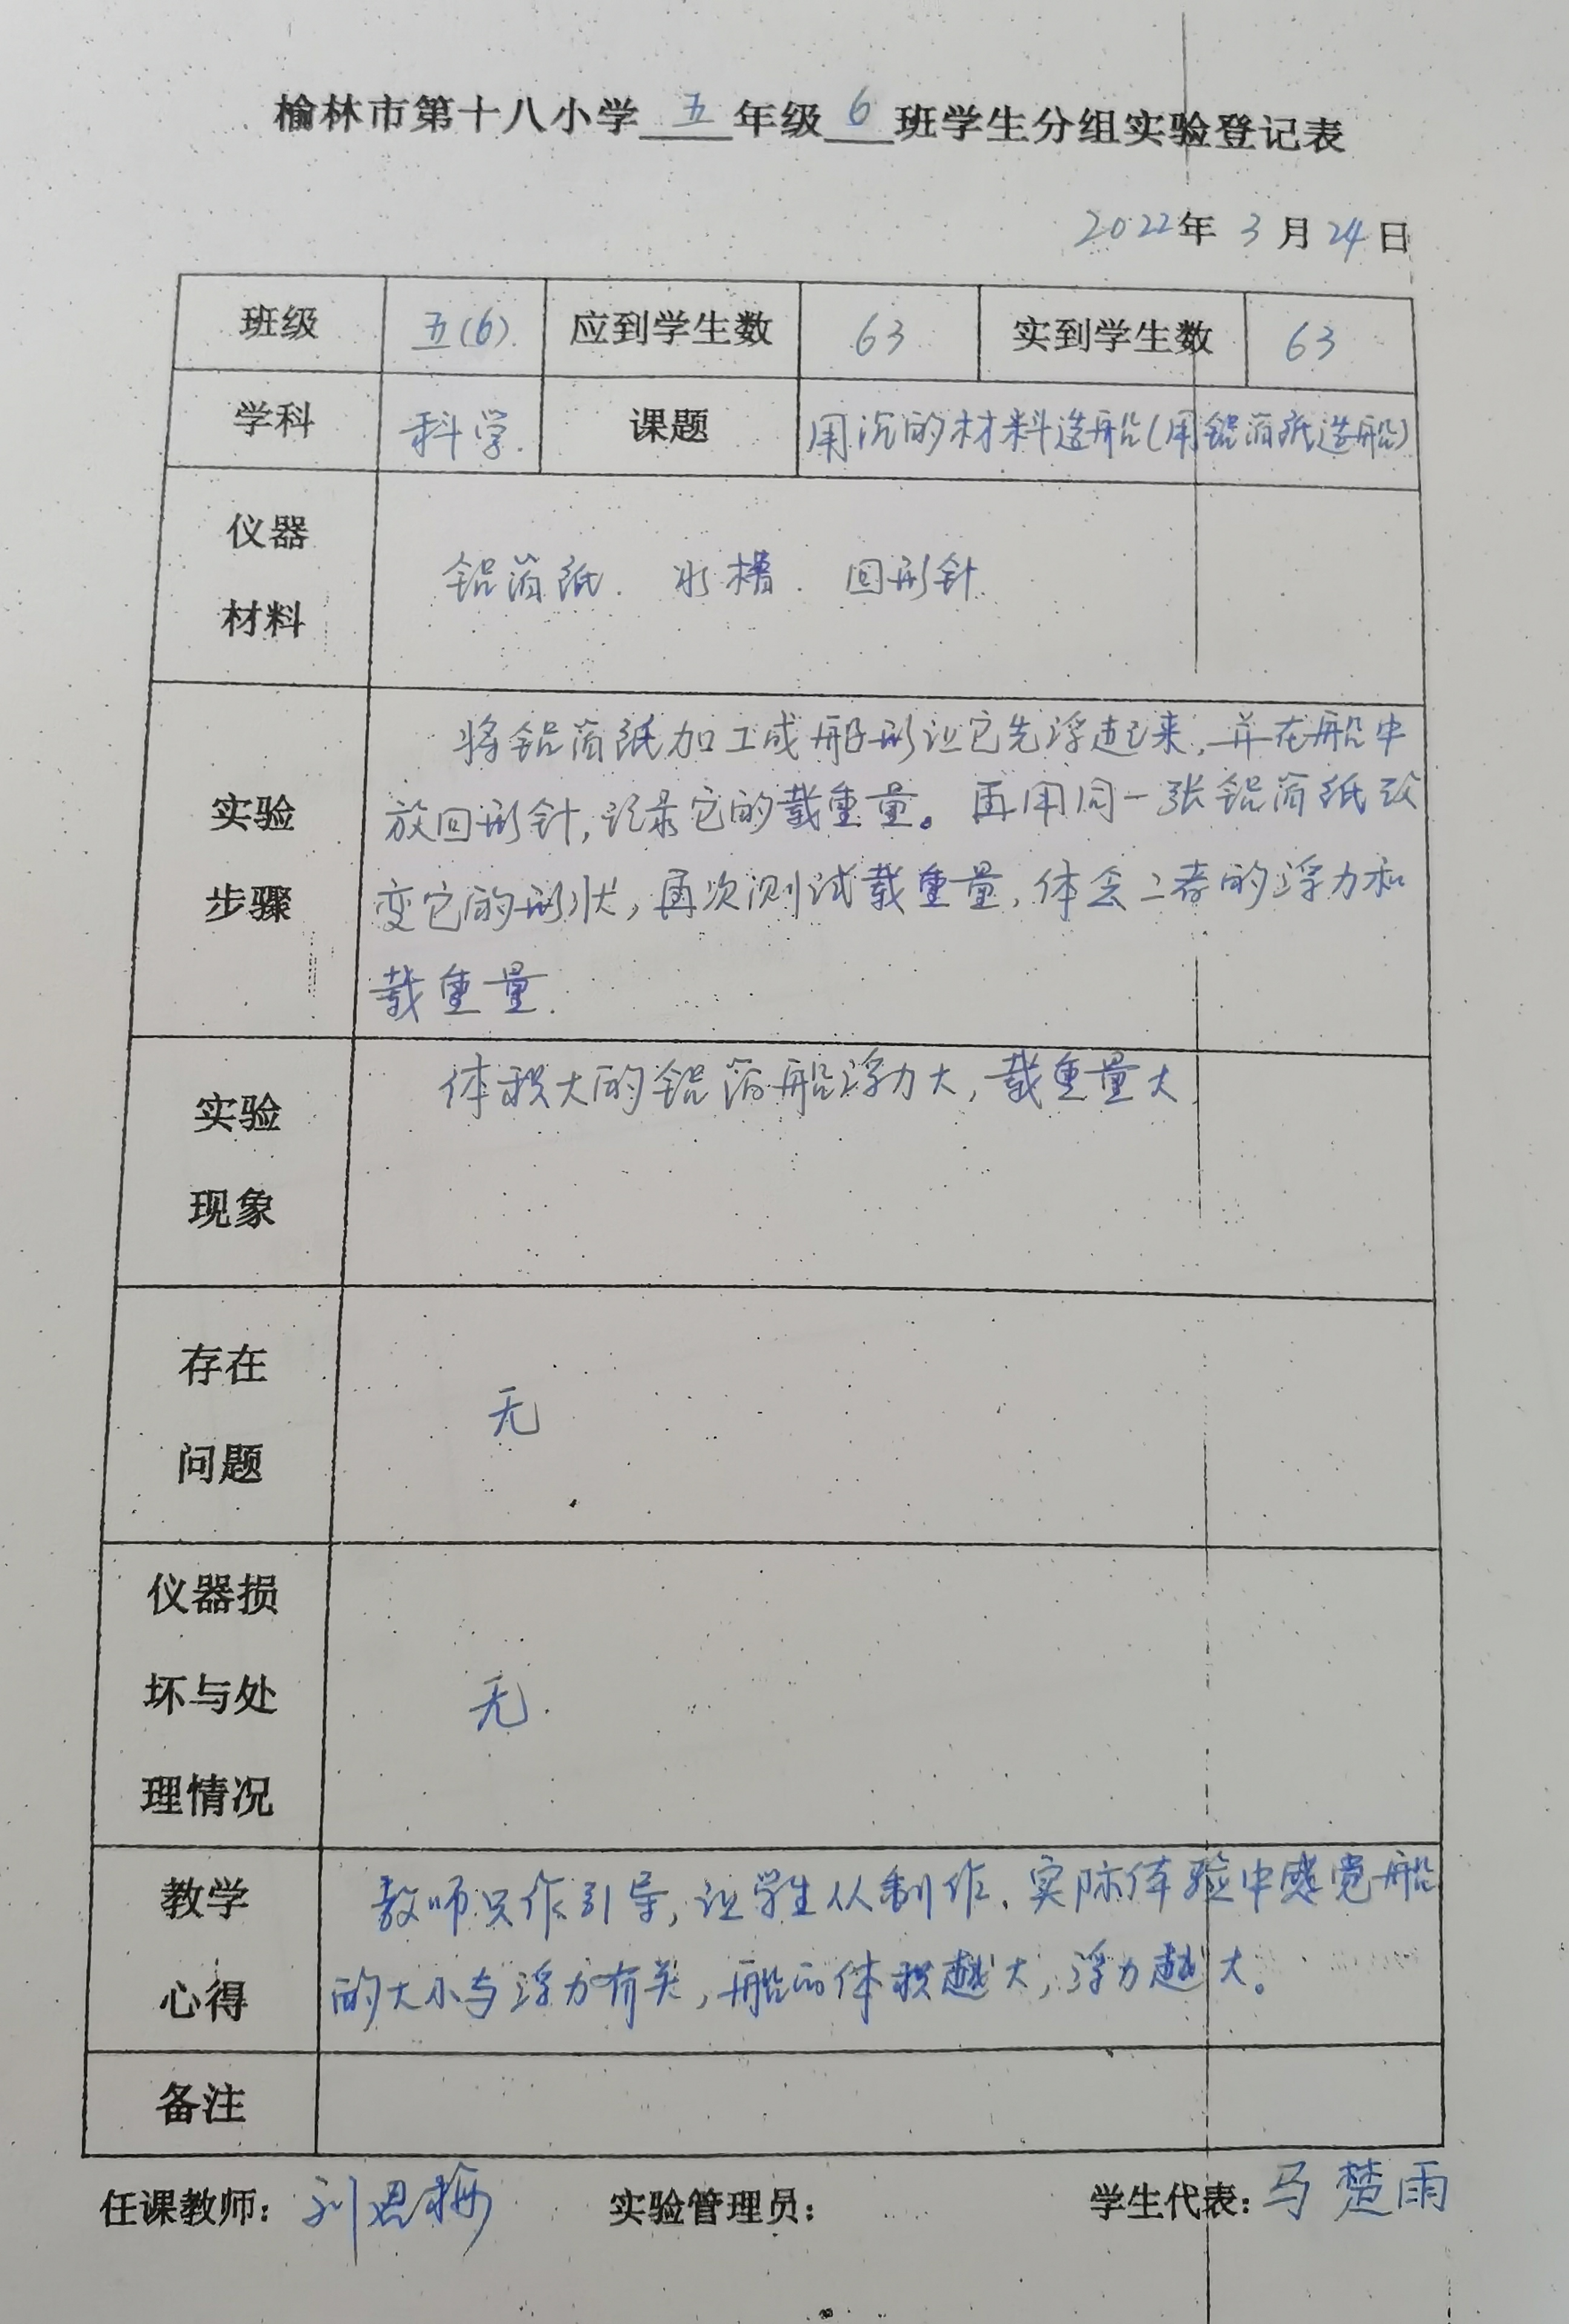 榆林市第十八小学 五 年级 6 班学生分组实验登记表
2022年 3 月 24 日
班级 五(6). 应到学生数 63 实到学生数 63
学科 科学. 课题 用沉的材料造船(用铝箔纸造船)
仪器
材料
铝箔纸. 水槽. 回形针.
实验
步骤
将铝箔纸加工成船形让它先浮起来,并在船中
放回形针,记录它的载重量。再用同一张铝箔纸改
变它的形状,再次测试载重量,体会二者的浮力和
载重量.
实验
现象
体积大的铝箔船浮力大,载重量大.
存在
问题
无
仪器损
坏与处
理情况
无.
教学
心得
教师只作引导,让学生从制作、实际体验中感觉船
的大小与浮力有关,船的体积越大,浮力越大。
备注
任课教师: 刘思梅 实验管理员: 学生代表: 马楚雨